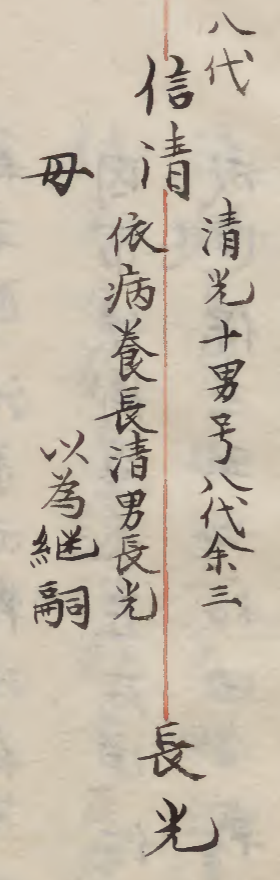 八代
信清
清光十男号八代余三
依病養長清男長光
以為継嗣
母
長光